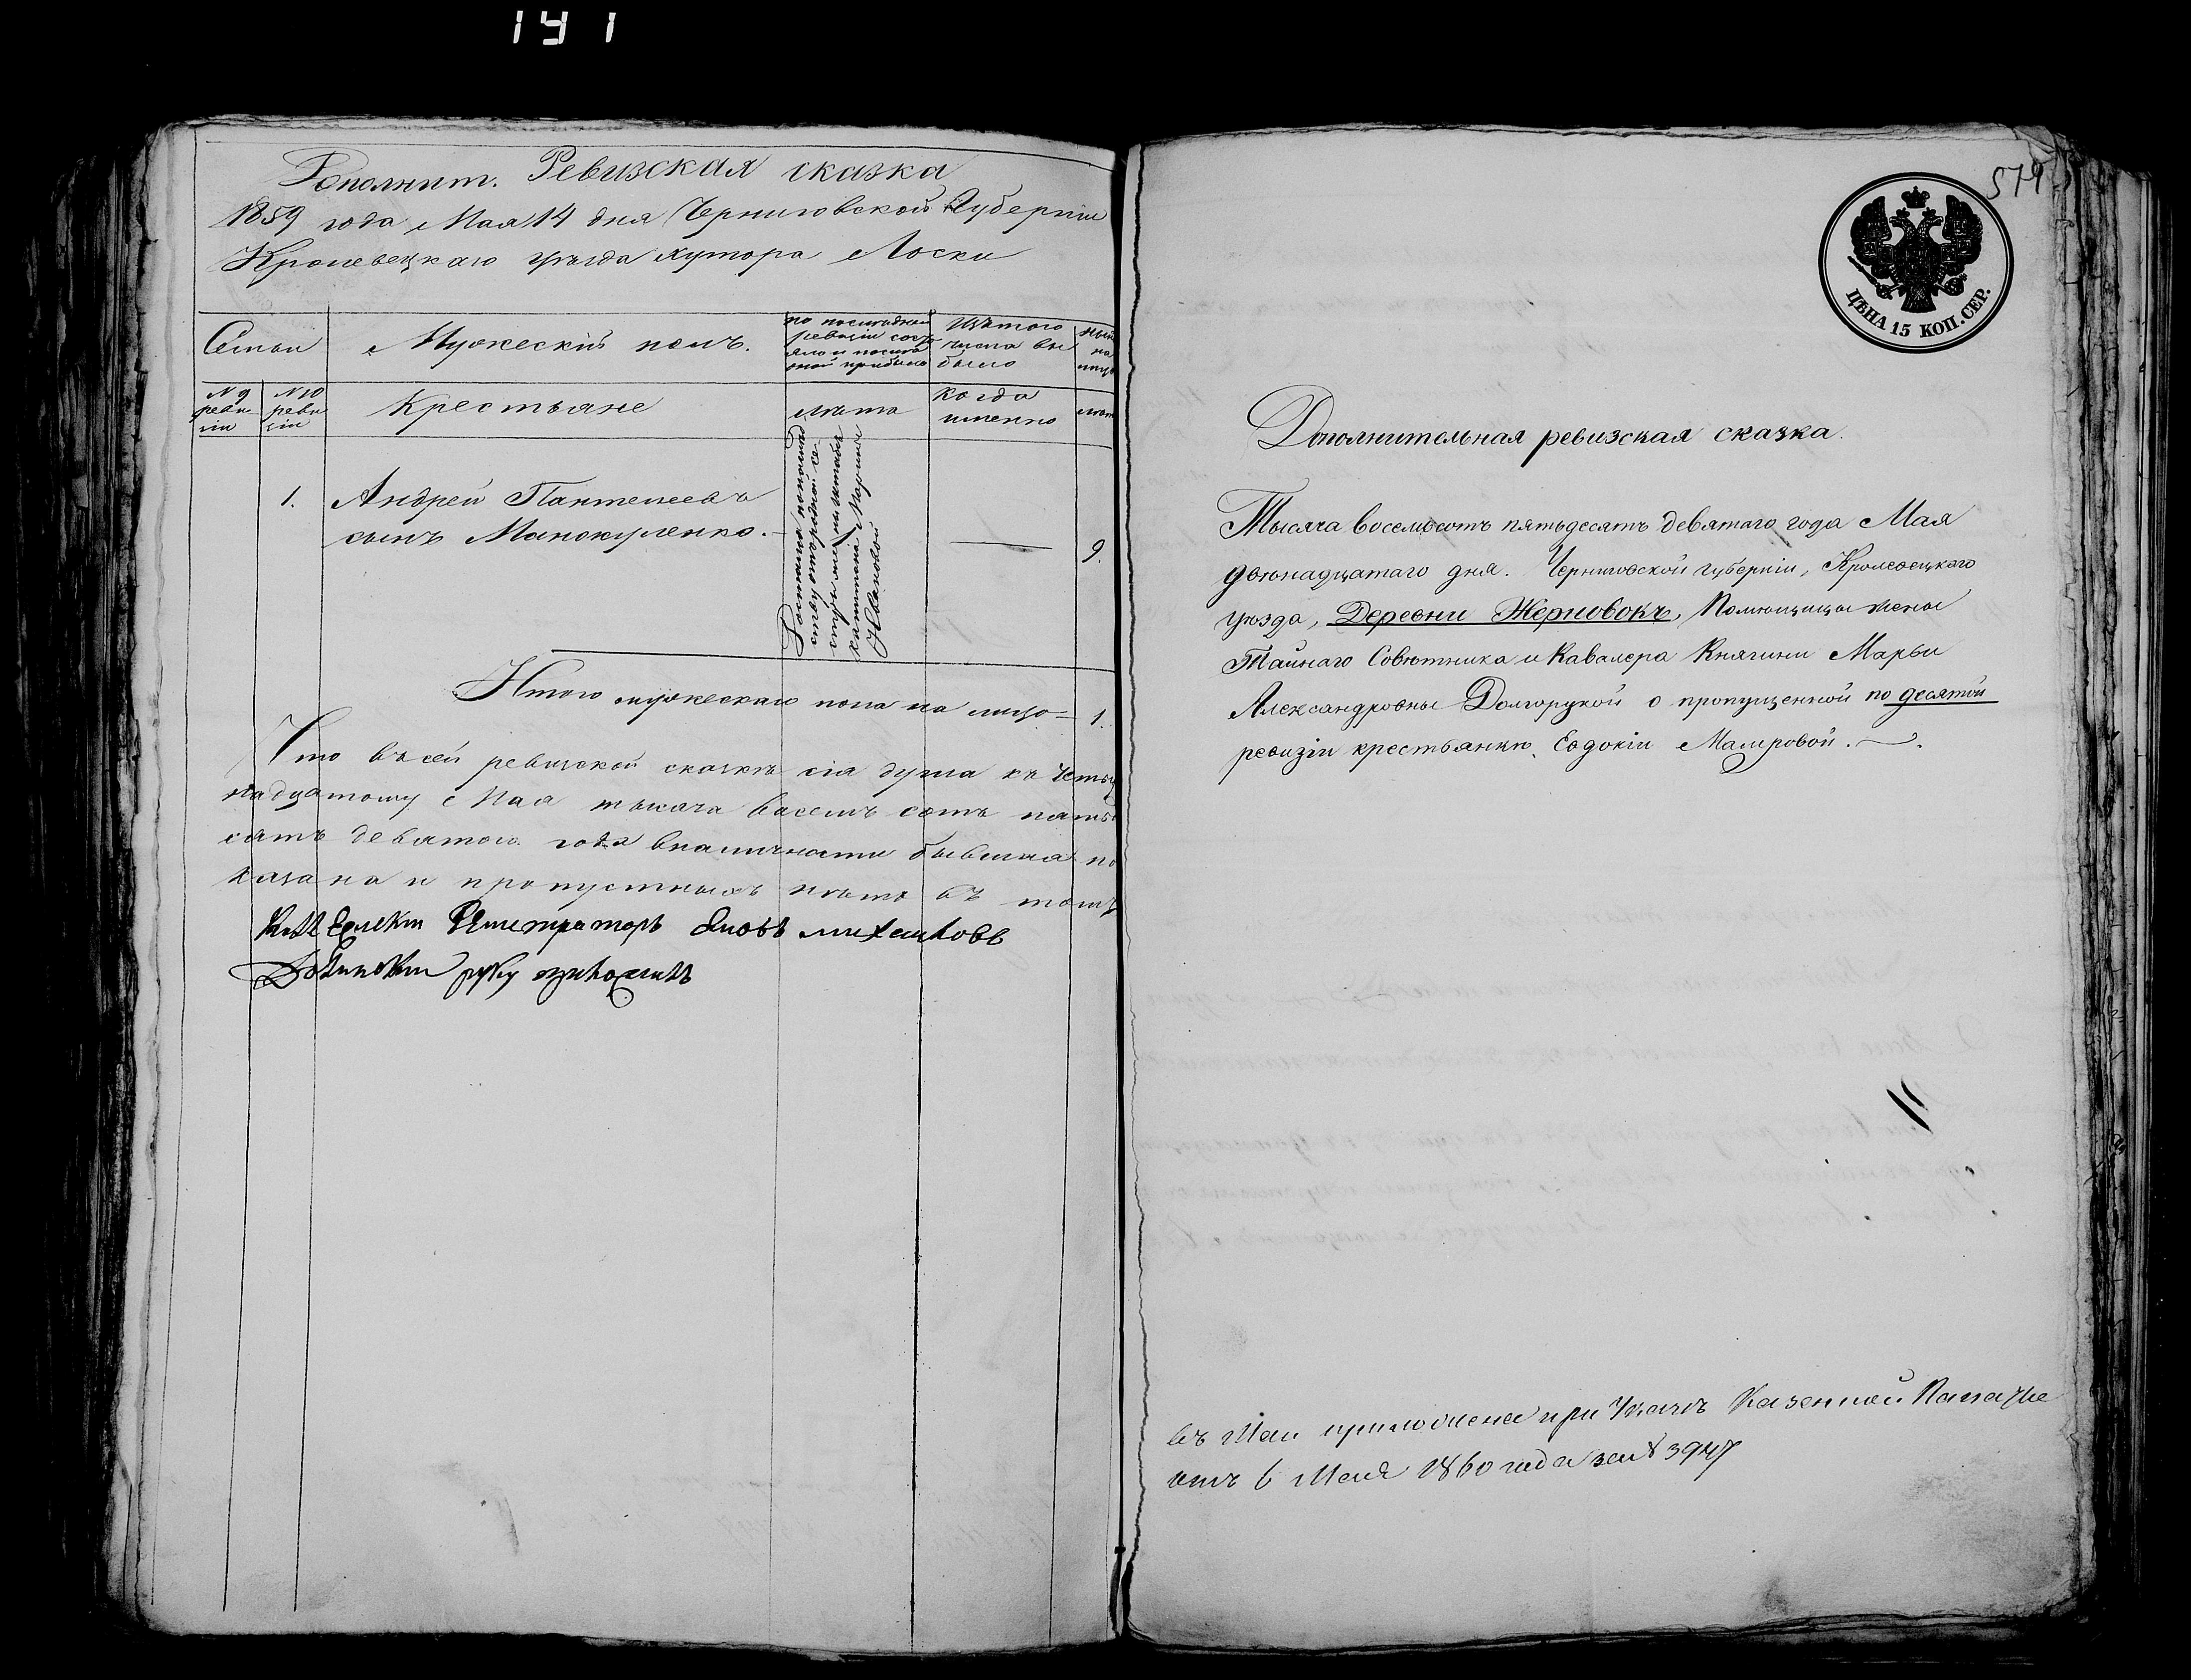 191
Дополнит. Ревизская сказка
1859 года Мая 14 дня Черниговской Губернии
Кролевецкаго уезда хутора Лоски
Семьи
Мужескій полъ.
по последней ревизіи состояло и после оной прибыло
Изъ того числа выбыло
ныне на лицо
№ 9 ревизіи
№ 10 ревизіи
Крестьяне
лета
Когда именно
лета
1.
Андрей Пантелеевъ
сынъ Манокуленко.
капитана Марины
Ивановой
9.
Итого мужескаго пола на лицо = 1.
Что въ сей ревизской сказке сія душа къ четыр
надцатому Мая тысяча восемь сотъ пятьде
сятъ девятого года вналичности бывшая по
казана и пропустныхъ нетъ въ томъ
Коллежскій Регистраторъ Яковъ Михайловъ
руку приложилъ
579
ЦѢНА 15 КОП. СЕР.
Дополнительная ревизская сказка.
Тысяча восемьсотъ пятьдесятъ девятаго года Мая
двѣнадцатаго дня. Черниговской губерніи, Кролевецкаго
уѣзда, Деревни Жерновокъ, Помѣщицы жены
Тайнаго Совѣтника и Кавалера Княгини Марьи
Александровны Долгорукой о пропущенной по десятой
ревизіи крестьянкѣ Евдокіи Маляровой.
приложена при Указѣ Казенной Палаты
отъ 6 Мая 1860 года за № 3947